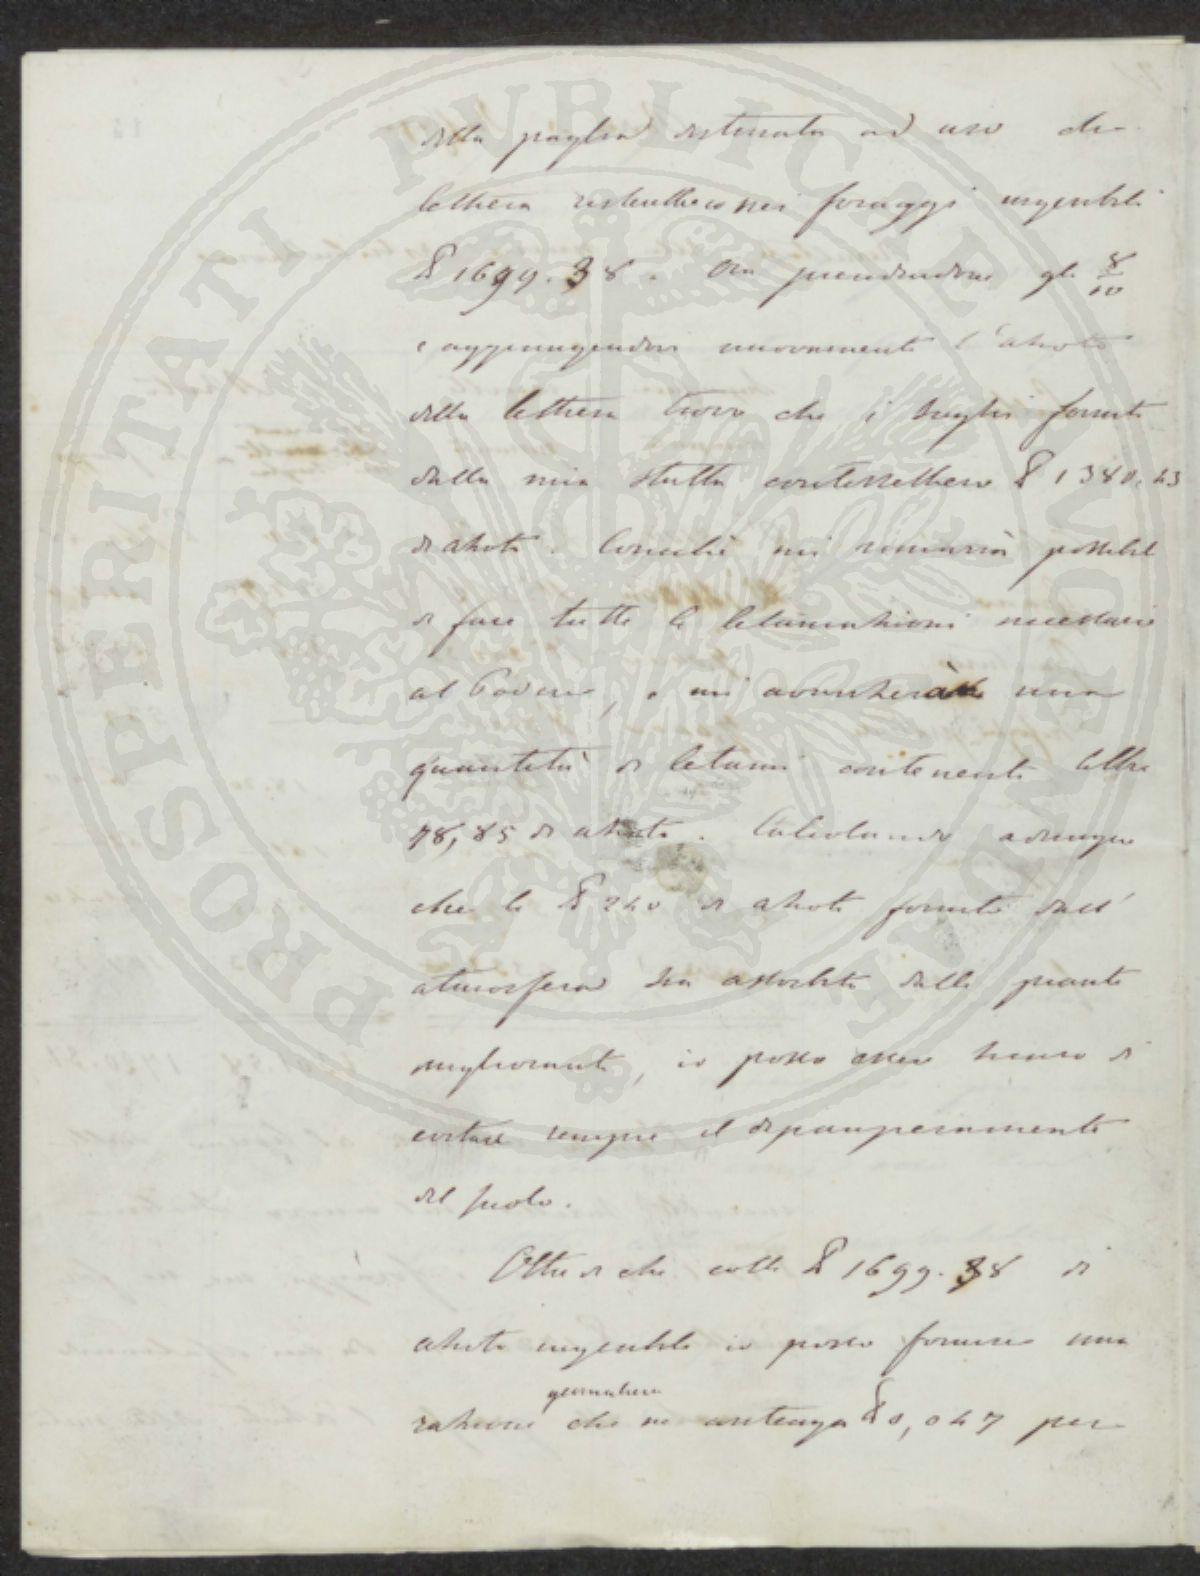 della paglia destinata ad uso di
lettiera resterebbero nei foraggi ingeribili
℔ 1699.38. Ora prendendone gli 8/10
e aggiungendovi nuovamente l'azoto
della lettiera trovo che i fornite
dalla mia stalla conterrebbero ℔ 1380,43
di azoto. Concichè mi rimarrà possibile
di fare tutte le letamazioni necessarie
al Podere, e mi avanzerà una
quantità di letami contenente libbre
78,85 di azoto. Calcolando adunque
che le ℔ 240 di azoto fornite dall'
atmosfera sia assorbita dalle piante
miglioranti, io posso esser sicuro di
evitare sempre il depauperamento
del suolo.
Oltre di che colle ℔ 1699.38 di
azoto ingeribile io posso fornire una
giornaliera
razione che ne contenga ℔ 0,047 per
PROSPERITATI PUBLICAE AUGENDAE